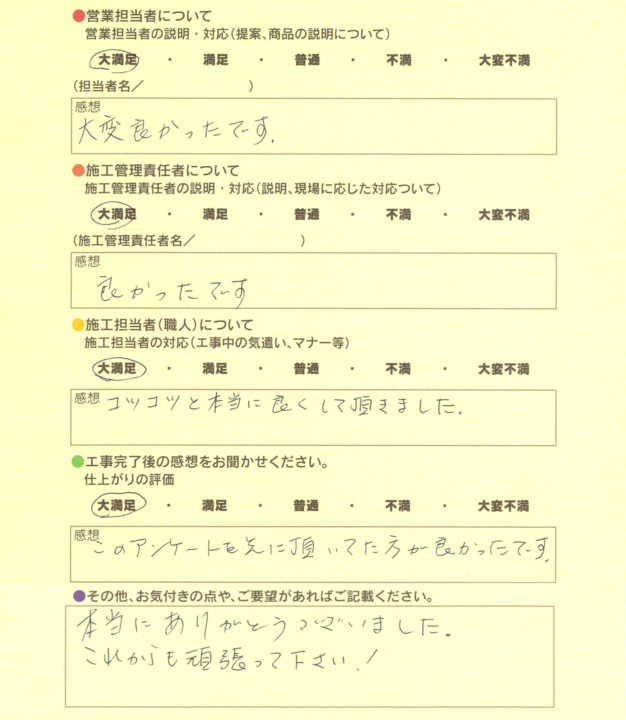 ●営業担当者について
営業担当者の説明・対応(提案、商品の説明について)
大満足 ・ 満足 ・ 普通 ・ 不満 ・ 大変不満
(担当者名/ )
感想
大変良かったです.
●施工管理責任者について
施工管理責任者の説明・対応(説明、現場に応じた対応ついて)
大満足 ・ 満足 ・ 普通 ・ 不満 ・ 大変不満
(施工管理責任者名/ )
感想
良かったです
●施工担当者(職人)について
施工担当者の対応(工事中の気遣い、マナー等)
大満足 ・ 満足 ・ 普通 ・ 不満 ・ 大変不満
感想 コツコツと本当に良くして頂きました.
●工事完了後の感想をお聞かせください。
仕上がりの評価
大満足 ・ 満足 ・ 普通 ・ 不満 ・ 大変不満
感想
このアンケートを先に頂いてた方が良かったです.
●その他、お気付きの点や、ご要望があればご記載ください。
本当にありがとうございました.
これからも頑張って下さい!